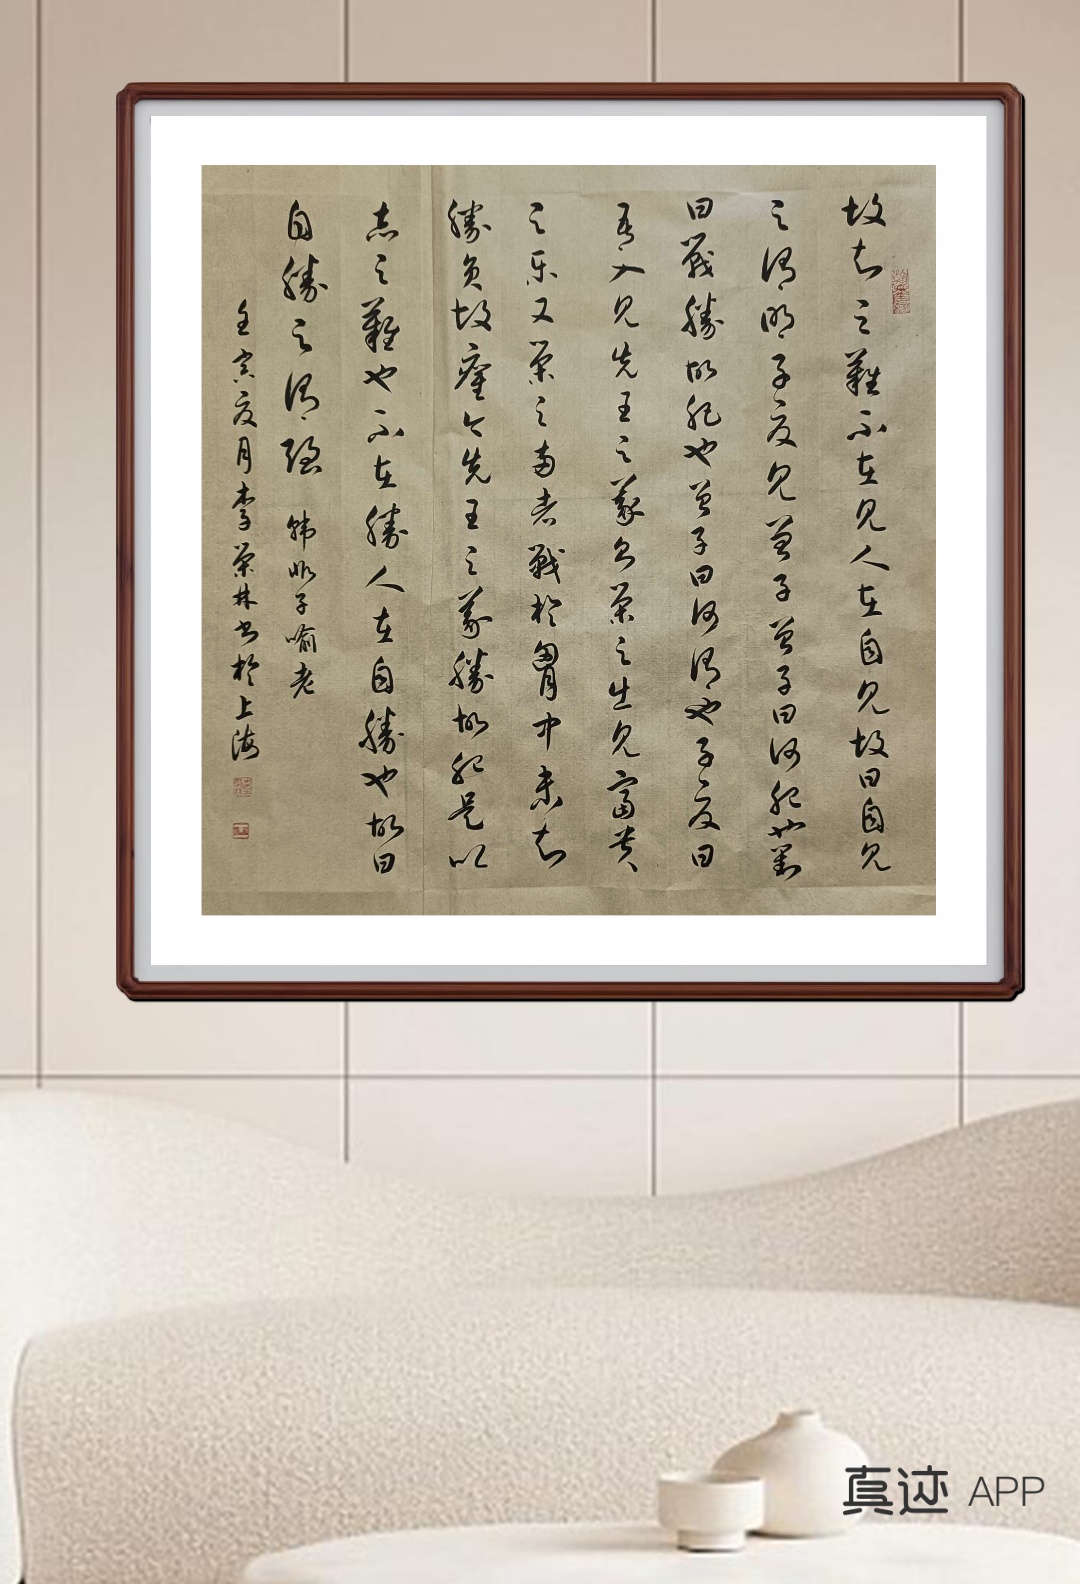 故知之難不在見人在自見故曰自見
之謂明子夏見曾子曾子曰何肥也對
曰戰勝故肥也曾子曰何謂也子夏曰
吾入見先王之義則榮之出見富貴
之乐又榮之兩者戰於胷中未知
勝負故癯今先王之義勝故肥是以
志之難也不在勝人在自勝也故曰
自勝之謂强 韩非子喻老
壬寅夏月李榮林书於上海
真迹 APP